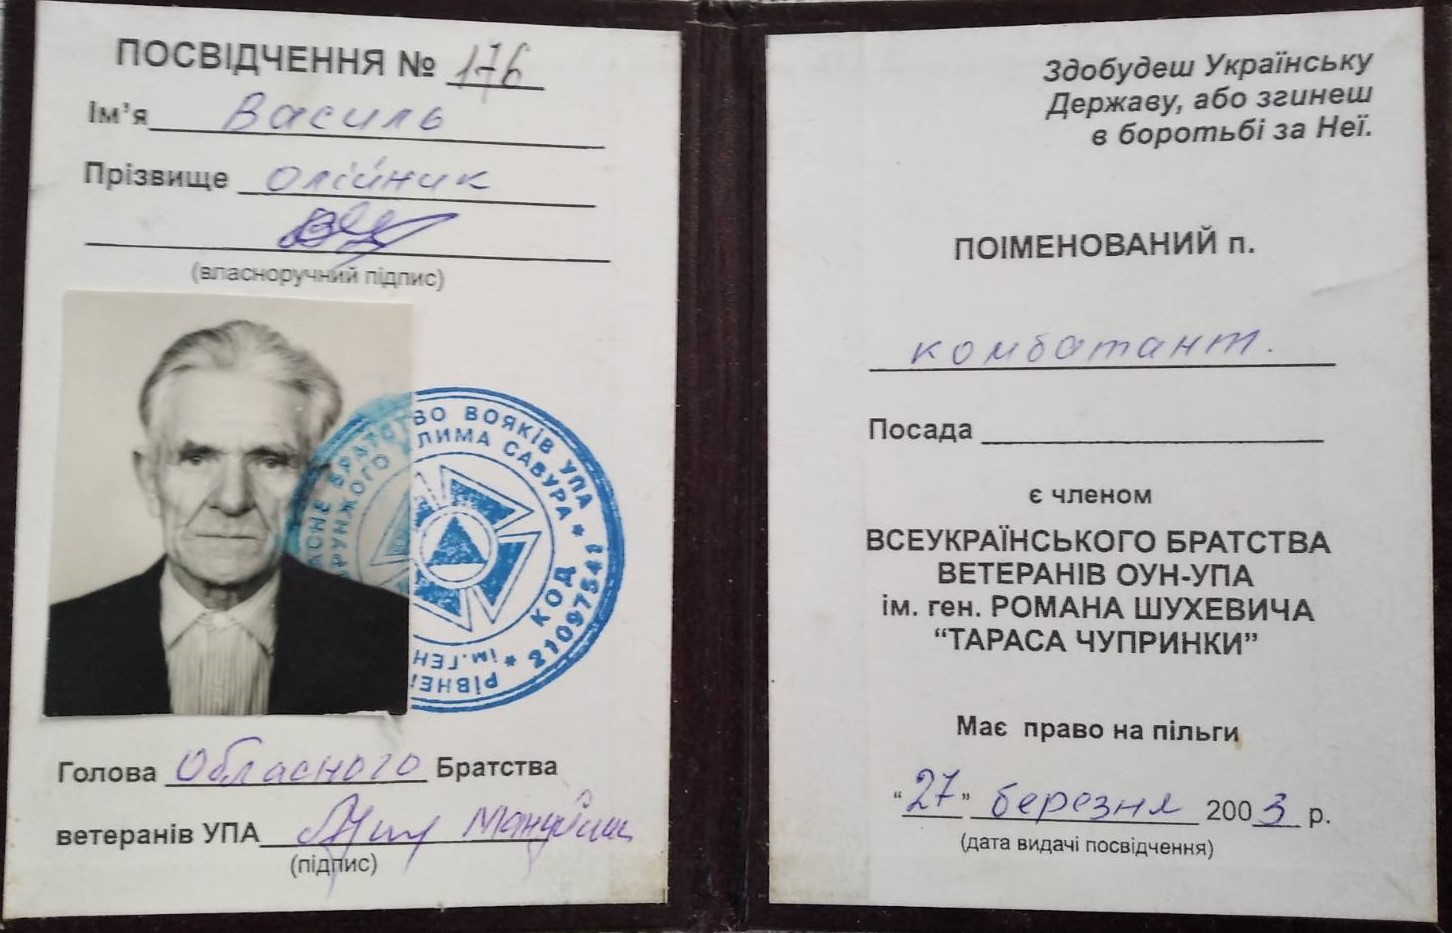 ПОСВІДЧЕННЯ № 176
Ім'я Василь
Прізвище Олійник
(власноручний підпис)
ВО ВОЯКІВ УПА
ЛИМА САВУРА * КОД
* 21097541
ім.ГЕН
РІВНЕ
Голова Обласного Братства
ветеранів УПА
(підпис)
Здобудеш Українську
Державу, або згинеш
в боротьбі за Неї.
ПОІМЕНОВАНИЙ п.
комбатант.
Посада
є членом
ВСЕУКРАЇНСЬКОГО БРАТСТВА
ВЕТЕРАНІВ ОУН-УПА
ім. ген. РОМАНА ШУХЕВИЧА
“ТАРАСА ЧУПРИНКИ”
Має право на пільги
“27” березня 2003 р.
(дата видачі посвідчення)